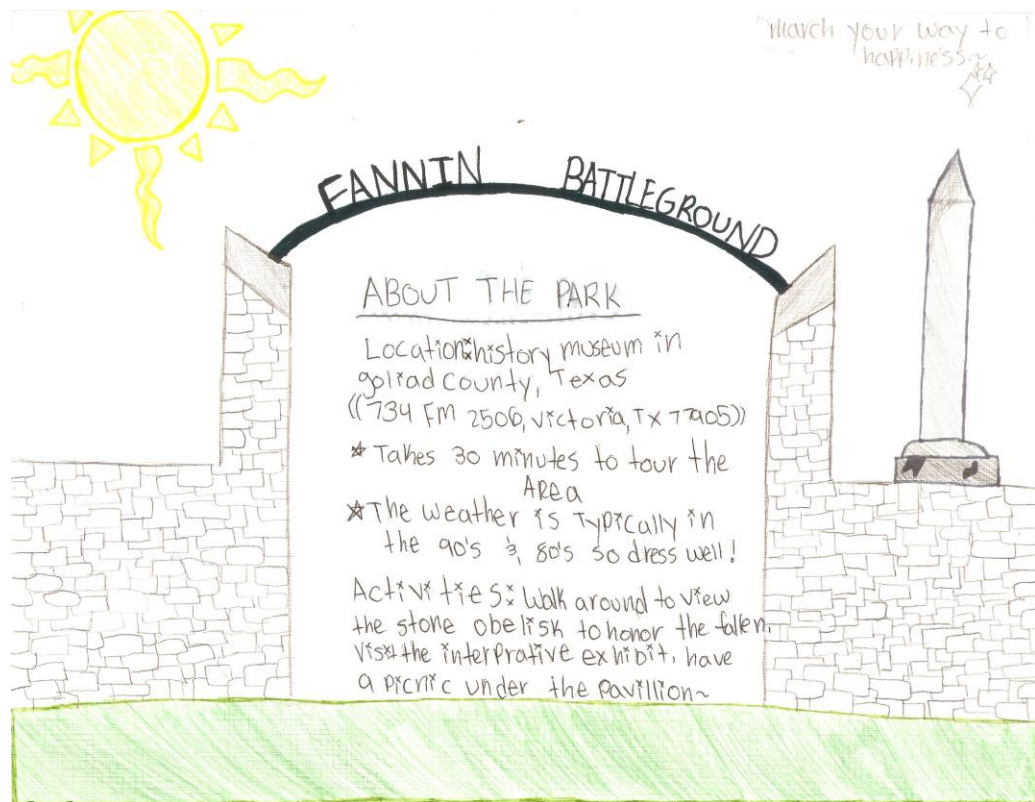 march your way to
happiness~
FANNIN BATTLEGROUND
ABOUT THE PARK
Location: history museum in
goliad county, Texas
((734 Fm 2506, victoria, TX 77905))
* Takes 30 minutes to tour the
AReA
* The weather is Typically in
the 90's & 80's so dress well!
Activities: Walk around to view
the stone obelisk to honor the fallen,
visit the interprative exhibit, have
a picnic under the pavillion~